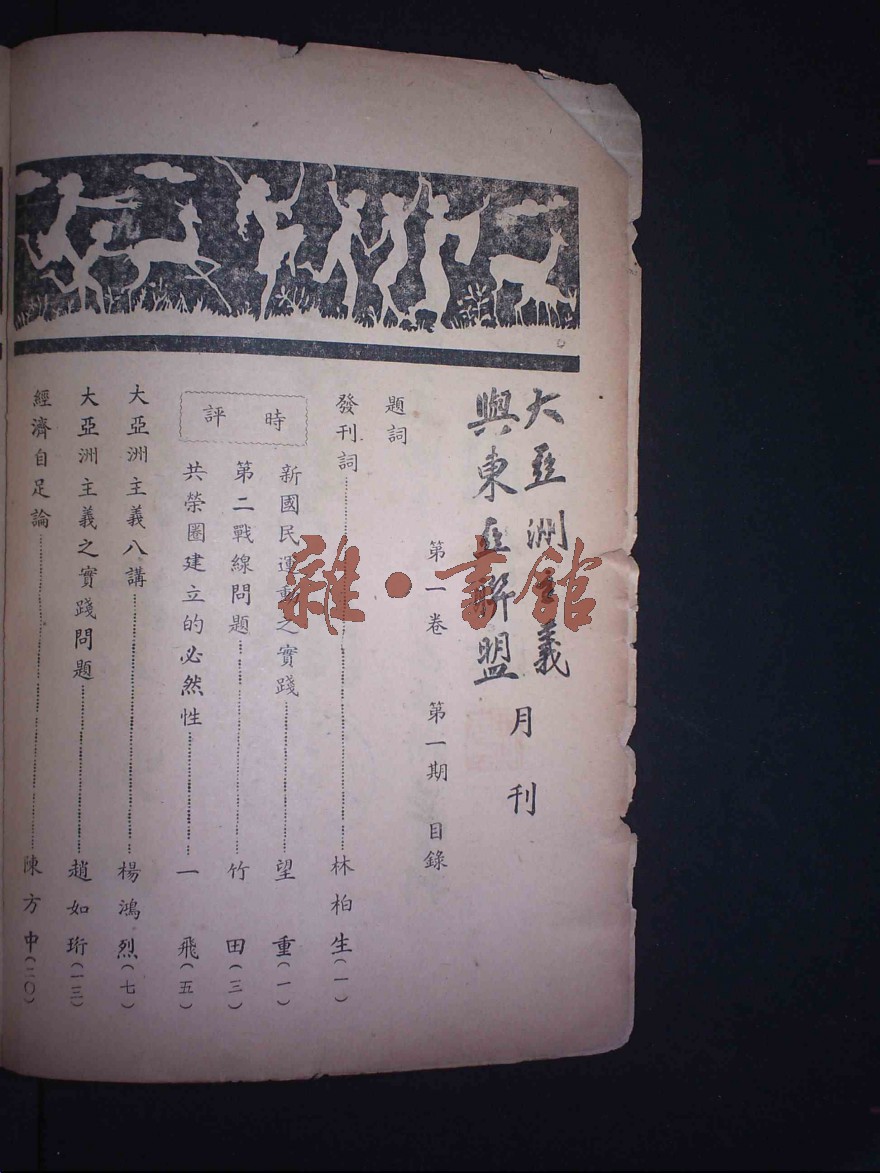 大亞洲主義
與東亞聯盟
月刊
第一卷 第一期 目錄
題詞
發刊詞……林柏生(一)
時評
新國民運動之實踐……望重(一)
第二戰線問題……竹田(三)
共榮圈建立的必然性……一飛(五)
大亞洲主義八講……楊鴻烈(七)
大亞洲主義之實踐問題……趙如珩(一三)
經濟自足論……陳方中(二〇)
雜·書館